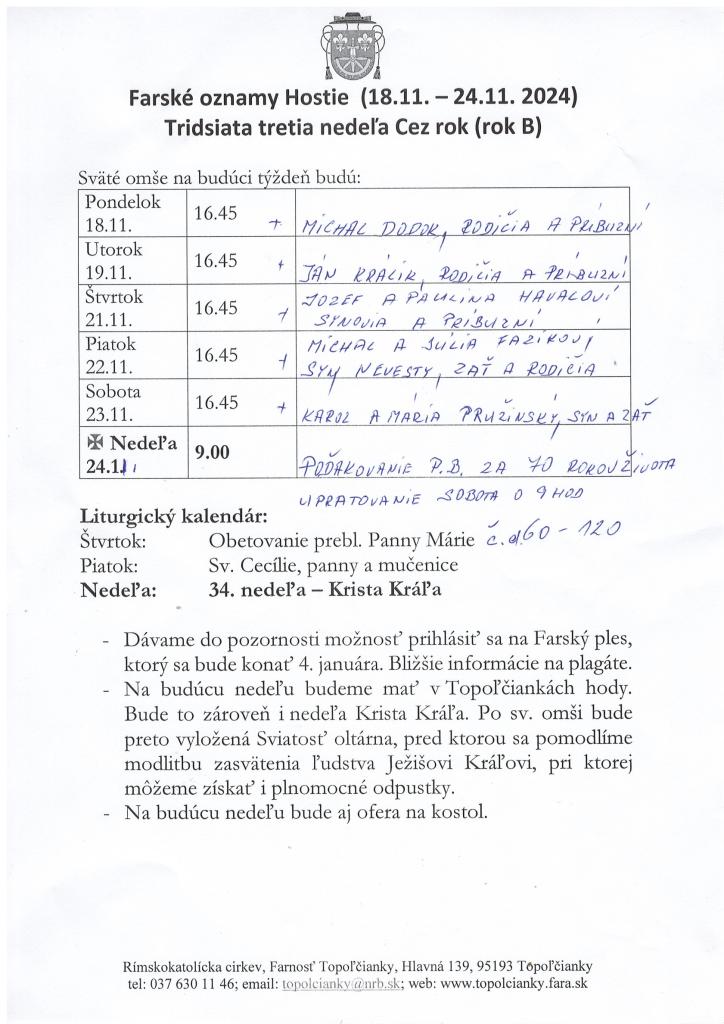 Farské oznamy Hostie (18.11. – 24.11. 2024)
Tridsiata tretia nedeľa Cez rok (rok B)
Sväté omše na budúci týždeň budú:
Pondelok 18.11. 16.45 + MICHAL DODOK, RODIČIA A PRÍBUZNÍ
Utorok 19.11. 16.45 + JÁN KRÁLIK, RODIČIA A PRÍBUZNÍ
Štvrtok 21.11. 16.45 + JOZEF A PAULÍNA HAVALOVÍ
SYNOVIA A PRÍBUZNÍ
Piatok 22.11. 16.45 + MICHAL A JÚLIA FAZÍKOVÍ
SYN NEVESTY, ZAŤ A RODIČIA
Sobota 23.11. 16.45 + KAROL A MÁRIA PRUŽINSKÝ, SYN A ZAŤ
✠ Nedeľa 24.11. 9.00 POĎAKOVANIE P.B. ZA 70 ROKOV ŽIVOTA
UPRATOVANIE SOBOTA O 9 HOD
Liturgický kalendár:
Štvrtok: Obetovanie prebl. Panny Márie č.d. 60 - 120
Piatok: Sv. Cecílie, panny a mučenice
Nedeľa: 34. nedeľa – Krista Kráľa
- Dávame do pozornosti možnosť prihlásiť sa na Farský ples,
ktorý sa bude konať 4. januára. Bližšie informácie na plagáte.
- Na budúcu nedeľu budeme mať v Topoľčiankách hody.
Bude to zároveň i nedeľa Krista Kráľa. Po sv. omši bude
preto vyložená Sviatosť oltárna, pred ktorou sa pomodlíme
modlitbu zasvätenia ľudstva Ježišovi Kráľovi, pri ktorej
môžeme získať i plnomocné odpustky.
- Na budúcu nedeľu bude aj ofera na kostol.
Rímskokatolícka cirkev, Farnosť Topoľčianky, Hlavná 139, 95193 Topoľčianky
tel: 037 630 11 46; email: topolcianky@nrb.sk; web: www.topolcianky.fara.sk